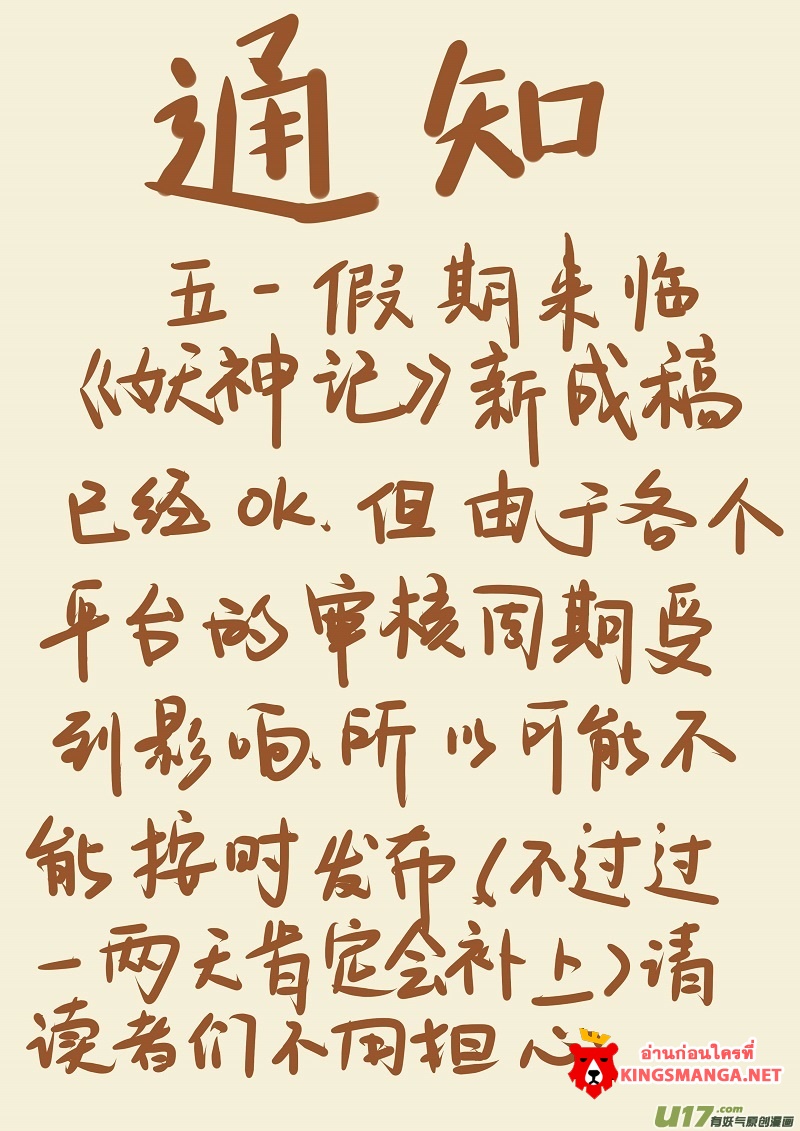 通知
五一假期来临
《妖神记》新成稿
已经OK、但由于各个
平台的审核周期受
到影响、所以可能不
能按时发布(不过过
一两天肯定会补上)请
读者们不用担心
อ่านก่อนใครที่
KINGSMANGA.NET
U17.com
有妖气原创漫画